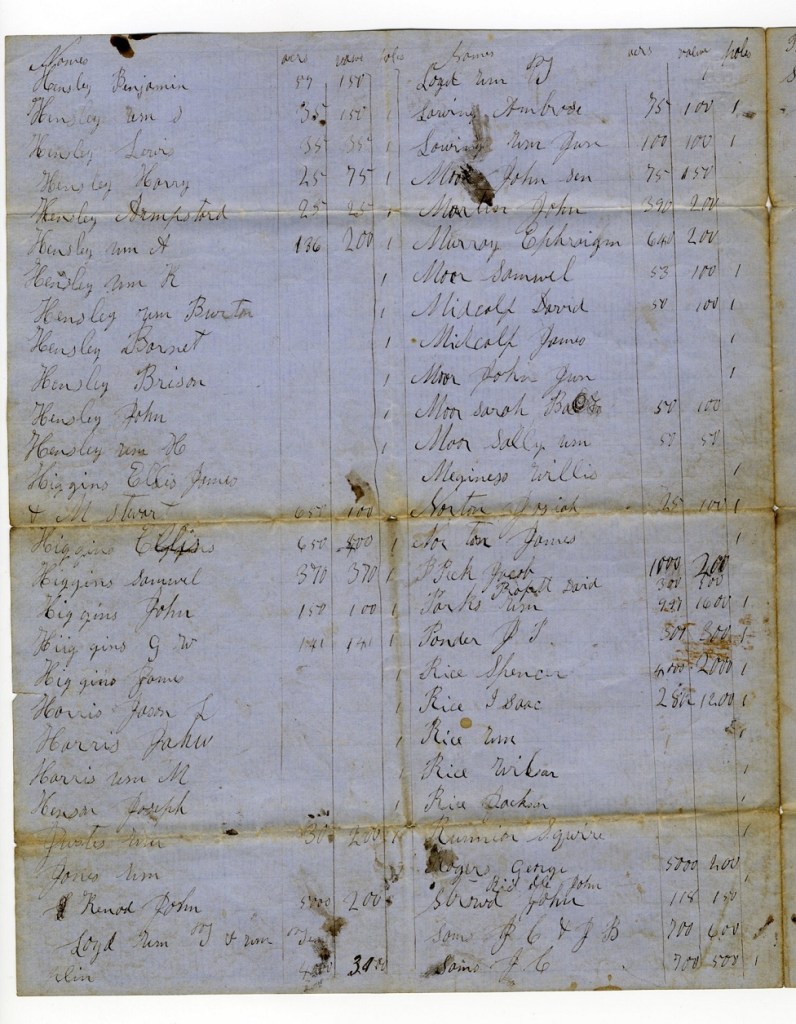 Names acrs valew poles
Hensley Benjamin 59 150
Hensley Wm S 35 150 1
Hensley Lewis 35 35 1
Hensley Harry 25 75 1
Hensley Hampsford 25 25 1
Hensley Wm A 136 200 1
Hensley Wm K 1
Hensley Wm Burton
Hensley Barnet 1
Hensley Brison 1
Hensley John 1
Hensley Wm H 1
Higgins Ellis James
& M Stewart 650 100
Higgins Ellis 650 400 1
Higgins Samuel 370 370 1
Higgins John 150 100 1
Higgins G W 141 141 1
Higgins Jame 1
Harris Jason L 1
Harris John 1
Harris Wm M 1
Hensar Joseph 1
30 200 1
Jones Wm
Kenod John 5000 200
Loyd Wm & Wm
3000
Names acrs valew poles
Loyd Wm
Lowing Ambrose 75 100 1
Lowing Wm Jun 100 100 1
Moor John Sen 75 150
John 390 200
Murray Ephraigm 640 200
Moor Samuel 53 100 1
Midcalf David 50 100 1
Midcalf James 1
Moor John Jun 1
Moor Sarah 50 100
Moor Sally Wm 50 50
Meginess Willis 1
Norton Josiah 25 100 1
Norton James 1
Peek Jacob 1000 200
Profitt David 300 100
Parks Wm 1600 1
Ponder J 301 300 1
Rice Spencer 4000 2000 1
Rice Isaac 280 1200 1
Rice Wm 1
Rice 1
Rice Jackson 1
Runnion Squire 1
Rogers George 5000 400
John
John 118 150
Sams J C & J B 700 600
Sams J C 700 500 1